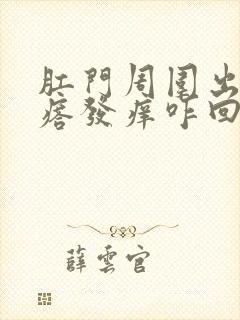 肛門周圍出
痞發痒咋回
薛雲官